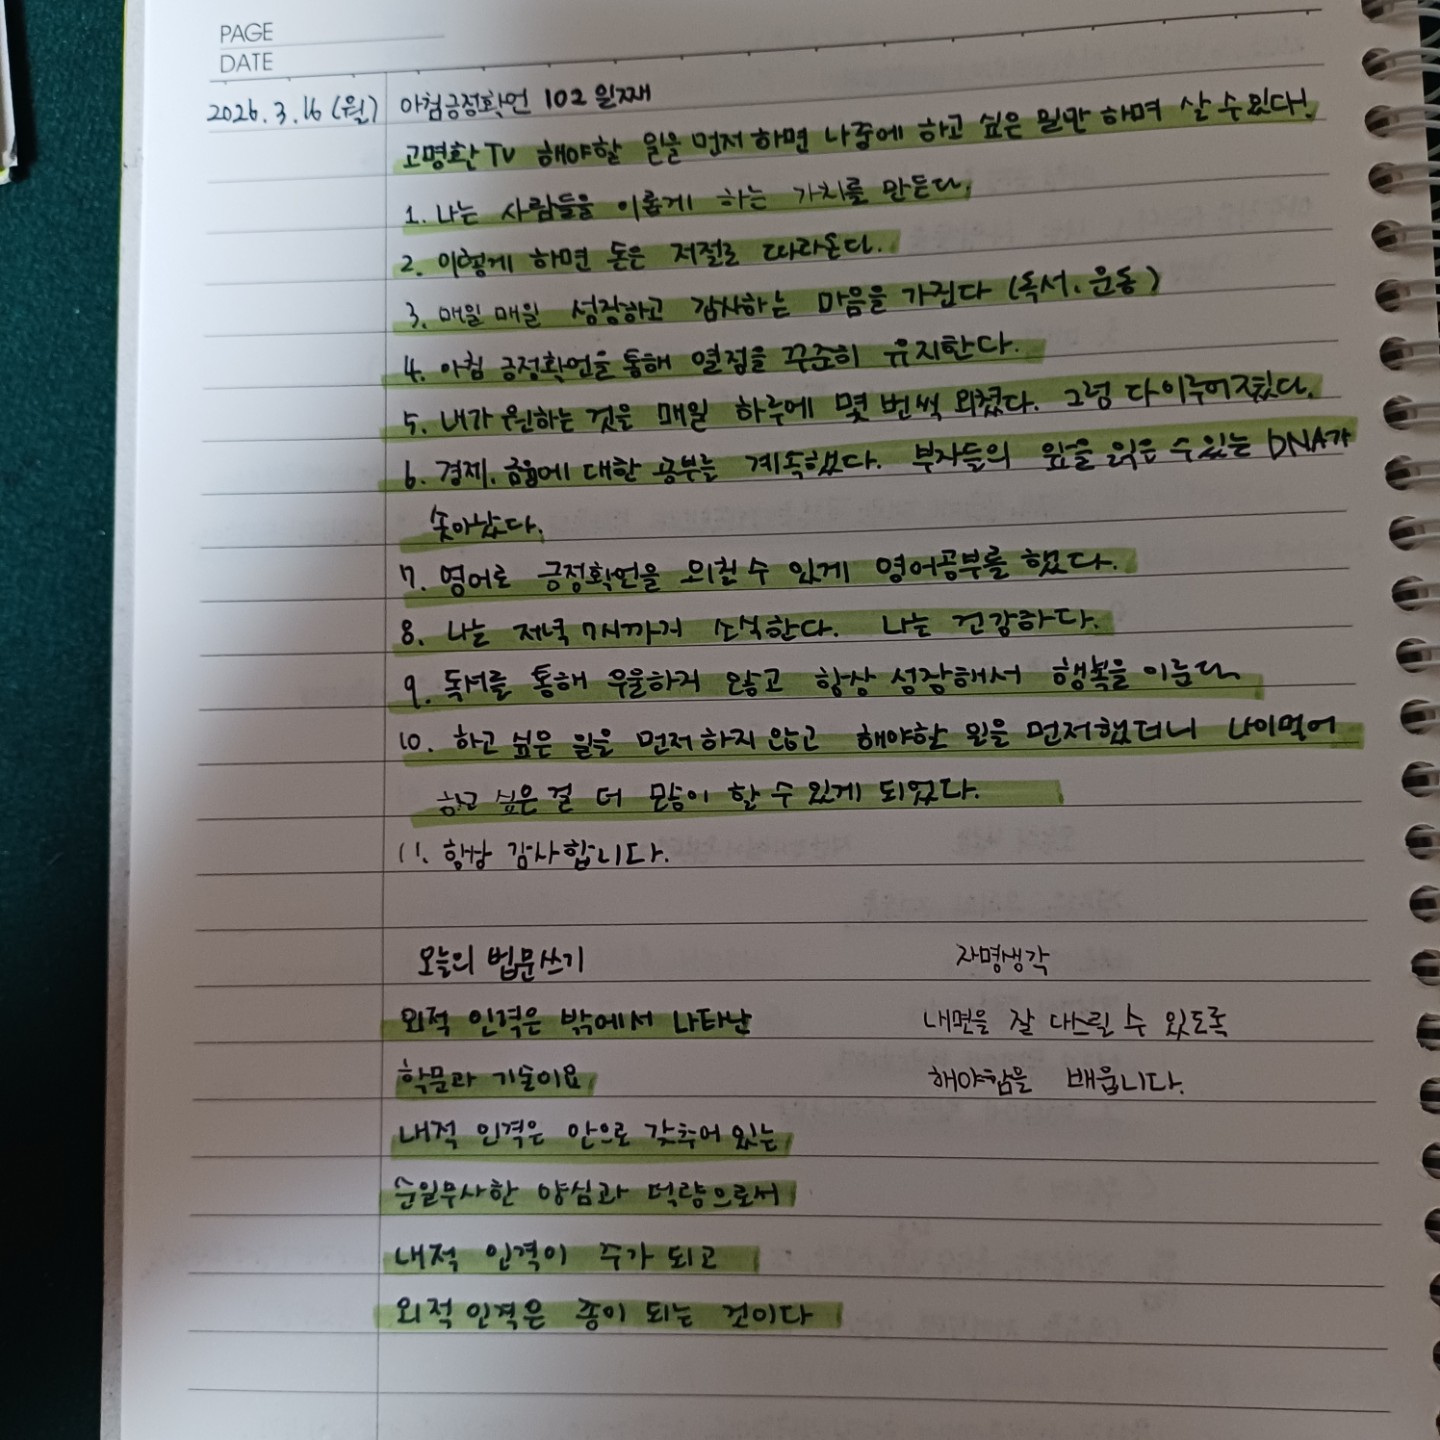 PAGE
DATE
2026.3.16 (월) 아침긍정확언 102일째
고명환TV 해야할 일을 먼저 하면 나중에 하고 싶은 일만 하며 살 수 있다!
1. 나는 사람들을 이롭게 하는 가치를 만든다.
2. 이렇게 하면 돈은 저절로 따라온다.
3. 매일 매일 성장하고 감사하는 마음을 가진다 (독서, 운동)
4. 아침 긍정확언을 통해 열정을 꾸준히 유지한다.
5. 내가 원하는 것을 매일 하루에 몇 번씩 외쳤다. 그럼 다 이루어졌다.
6. 경제, 금융에 대한 공부를 계속했다. 부자들의 앞을 읽을 수 있는 DNA가
솟아났다.
7. 영어로 긍정확언을 외칠 수 있게 영어공부를 했다.
8. 나는 저녁 7시까지 소식한다. 나는 건강하다.
9. 독서를 통해 우울하지 않고 항상 성장해서 행복을 이룬다.
10. 하고 싶은 일을 먼저 하지 않고 해야할 일을 먼저했더니 나이먹어
하고 싶은 걸 더 많이 할 수 있게 되었다.
11. 항상 감사합니다.
오늘의 법문쓰기 자명생각
외적 인격은 밖에서 나타난 내면을 잘 다스릴 수 있도록
학문과 기술이요 해야함을 배웁니다.
내적 인격은 안으로 갖추어 있는
순일무사한 양심과 덕량으로서
내적 인격이 주가 되고
외적 인격은 종이 되는 것이다